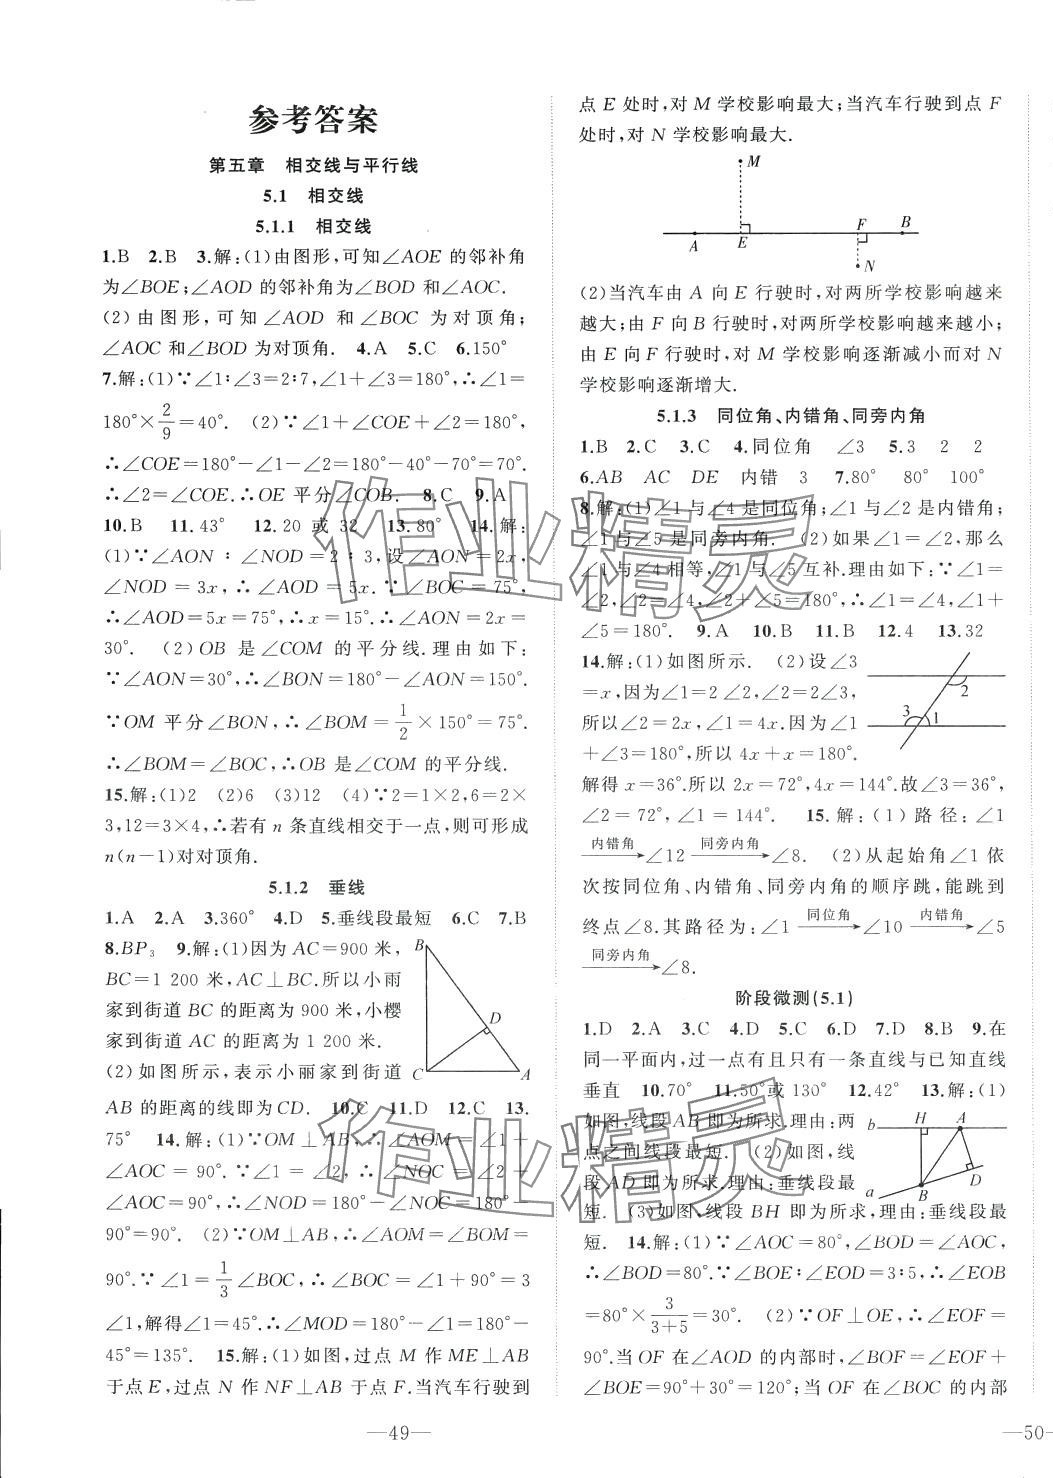 参考答案
第五章 相交线与平行线
5.1 相交线
5.1.1 相交线
1.B 2.B 3.解:(1)由图形,可知∠AOE 的邻补角
为∠BOE;∠AOD 的邻补角为∠BOD 和∠AOC.
(2)由图形,可知∠AOD 和∠BOC 为对顶角;
∠AOC 和∠BOD 为对顶角. 4.A 5.C 6.150°
7.解:(1)∵∠1∶∠3=2∶7,∠1+∠3=180°,∴∠1=
180°×2/9=40°. (2)∵∠1+∠COE+∠2=180°,
∴∠COE=180°-∠1-∠2=180°-40°-70°=70°.
∴∠2=∠COE.∴OE 平分∠COB. 8.C 9.A
10.B 11.43° 12.20 或 32 13.80° 14.解:
(1)∵∠AON∶∠NOD=2∶3,设∠AON=2x,
∠NOD=3x,∴∠AOD=5x.∵∠BOC=75°,
∴∠AOD=5x=75°,∴x=15°.∴∠AON=2x=
30°. (2)OB 是∠COM 的平分线.理由如下:
∵∠AON=30°,∴∠BON=180°-∠AON=150°.
∵OM 平分∠BON,∴∠BOM=1/2×150°=75°.
∴∠BOM=∠BOC,∴OB 是∠COM 的平分线.
15.解:(1)2 (2)6 (3)12 (4)∵2=1×2,6=2×
3,12=3×4,∴若有 n 条直线相交于一点,则可形成
n(n-1)对对顶角.
5.1.2 垂线
1.A 2.A 3.360° 4.D 5.垂线段最短 6.C 7.B
8.BP₃ 9.解:(1)因为 AC=900 米,
BC=1 200 米,AC⊥BC.所以小雨
家到街道 BC 的距离为 900 米,小樱
家到街道 AC 的距离为 1 200 米.
(2)如图所示,表示小丽家到街道
B
D
C
A
AB 的距离的线即为CD. 10.C 11.D 12.C 13.
75° 14.解:(1)∵OM⊥AB,∴∠AOM=∠1+
∠AOC=90°.∵∠1=∠2,∴∠NOC=∠2+
∠AOC=90°,∴∠NOD=180°-∠NOC=180°-
90°=90°. (2)∵OM⊥AB,∴∠AOM=∠BOM=
90°.∵∠1=1/3∠BOC,∴∠BOC=∠1+90°=3
∠1,解得∠1=45°.∴∠MOD=180°-∠1=180°-
45°=135°. 15.解:(1)如图,过点 M 作 ME⊥AB
于点 E,过点 N 作 NF⊥AB 于点 F.当汽车行驶到
—49—
点 E 处时,对 M 学校影响最大;当汽车行驶到点 F
处时,对 N 学校影响最大.
M
A
E
F
B
N
(2)当汽车由 A 向 E 行驶时,对两所学校影响越来
越大;由 F 向 B 行驶时,对两所学校影响越来越小;
由 E 向 F 行驶时,对 M 学校影响逐渐减小而对 N
学校影响逐渐增大.
5.1.3 同位角、内错角、同旁内角
1.B 2.C 3.C 4.同位角 ∠3 5.3 2 2
6.AB AC DE 内错 3 7.80° 80° 100°
8.解:(1)∠1与∠4是同位角;∠1与∠2是内错角;
∠1与∠5是同旁内角. (2)如果∠1=∠2,那么
∠1与∠4相等,∠1与∠5互补.理由如下:∵∠1=
∠2,∠2=∠4,∠2+∠5=180°,∴∠1=∠4,∠1+
∠5=180°. 9.A 10.B 11.B 12.4 13.32
14.解:(1)如图所示. (2)设∠3
=x,因为∠1=2∠2,∠2=2∠3,
所以∠2=2x,∠1=4x.因为∠1
+∠3=180°,所以 4x+x=180°.
2
3
1
解得 x=36°.所以 2x=72°,4x=144°.故∠3=36°,
∠2=72°,∠1=144°. 15.解:(1)路径:∠1
内错角→∠12 同旁内角→∠8. (2)从起始角∠1依
次按同位角、内错角、同旁内角的顺序跳,能跳到
终点∠8.其路径为:∠1 同位角→∠10 内错角→∠5
同旁内角→∠8.
阶段微测(5.1)
1.D 2.A 3.C 4.D 5.C 6.D 7.D 8.B 9.在
同一平面内,过一点有且只有一条直线与已知直线
垂直 10.70° 11.50°或 130° 12.42° 13.解:(1)
如图,线段 AB 即为所求.理由:两
点之间线段最短. (2)如图,线
段AD 即为所求.理由:垂线段最
b
H
A
a
B
D
短. (3)如图,线段 BH 即为所求,理由:垂线段最
短. 14.解:(1)∵∠AOC=80°,∠BOD=∠AOC,
∴∠BOD=80°.∵∠BOE∶∠EOD=3∶5,∴∠EOB
=80°×3/(3+5)=30°. (2)∵OF⊥OE,∴∠EOF=
90°.当 OF 在∠AOD 的内部时,∠BOF=∠EOF+
∠BOE=90°+30°=120°;当 OF 在∠BOC 的内部
—50-
作业精灵
作业精灵